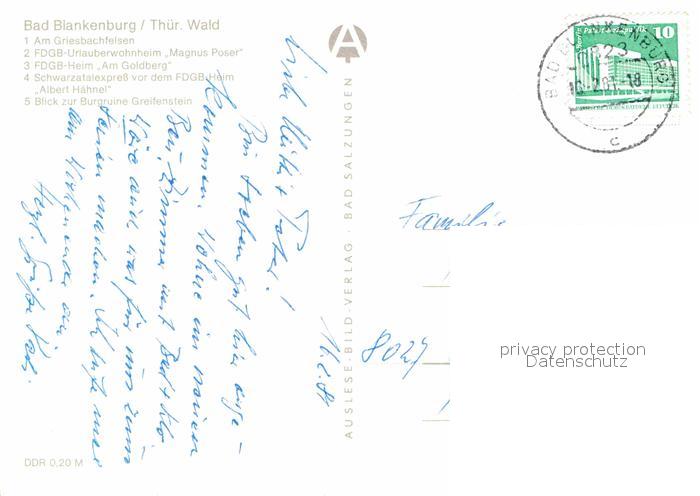 Bad Blankenburg / Thür. Wald
1 Am Griesbachfelsen
2 FDGB-Urlauberwohnheim „Magnus Poser"
3 FDGB-Heim „Am Goldberg"
4 Schwarzatalexpreß vor dem FDGB-Heim
„Albert Hähnel"
5 Blick zur Burgruine Greifenstein
AUSLESE-BILD-VERLAG · BAD SALZUNGEN
10
BAD BLANKENBURG
6823
18
c
Bin soeben gut hier ange-
kommen. Wohne im neuen
Bau, Zimmer mit Bad + Klo
was für uns zum
machen.
Herzl. Grüße
Familie
8027
privacy protection
Datenschutz
DDR 0,20 M